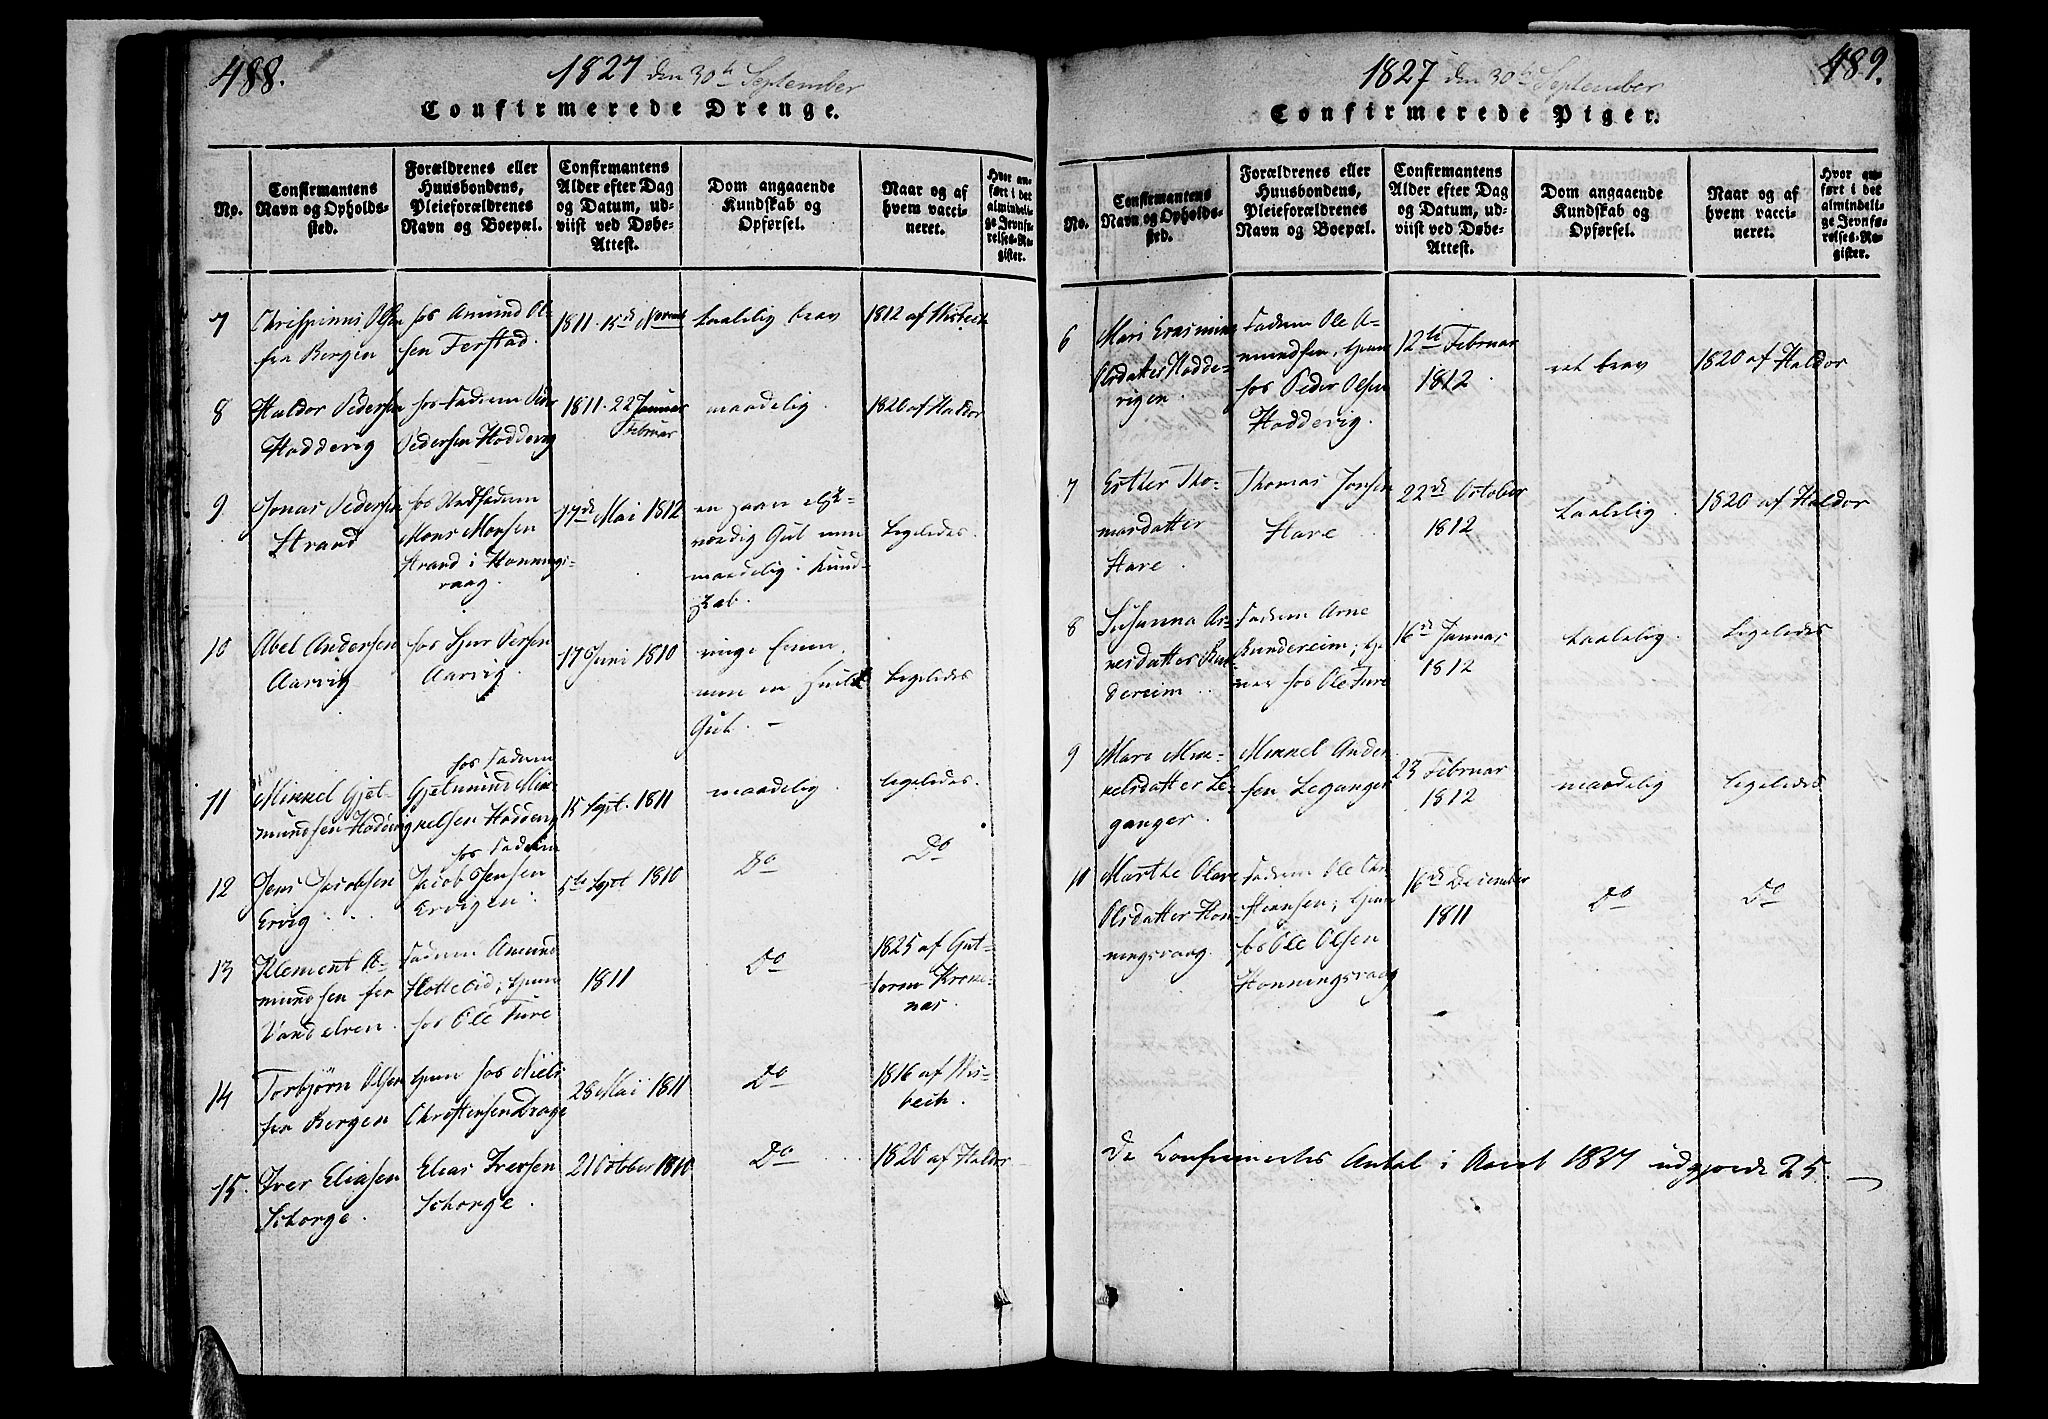 488.
1827 den 30te September
Confirmerede Drenge.
No.
Confirmantens Navn og Opholds-sted.
Forældrenes eller Huusbondens, Pleieforældrenes Navn og Boepæl.
Confirmantens Alder efter Dag og Datum, ud-viist ved Døbe-Attest.
Dom angaaende Kundskab og Opførsel.
Naar og af hvem vacci-neret.
Hvor an-ført i det almindeli-ge Jevnfø-relses-Re-gister.
7
Chrispinus Olsen
fra Bergen
hos Amund Ol-
sen Ferstad.
1811. 15de Novemb
taalelig brav
1812 af Hisbech
8
Haldor Pedersen
Hoddevig
hos Fadren Peder
Pedersen Hoddevig
1811. 22 Januar
Februar
maadelig.
1820 af Haldor
9
Jonas Pedersen
Strand
hos Stedfadren
Mons Monsen
Strand i Honnings-
vaag.
17de Mai 1812
en
værdig Gut men
maadelig i Kund-
skab.
Ligeledes.
10
Abel Andersen
Aarvig
hos Siur Persen
Aarvig.
17 Juni 1810
ringe Evner,
men en
Gut. -
Ligeledes
11
Mikkel Gjel-
mundsen Hodevig
hos Fadren
Gjelmund Mik-
kelsen Hoddevig
15 Sept. 1811
maadelig.
ligeledes.
12
Jens Jacobsen
Ervig
hos Fadren
Jacob Jensen
Ervigen.
5te Sept 1810
Do
Do
13
Klement A-
mundsen fra
Vandelven.
Fadren Amund
Flotteeid, tjener
hos Ole Fure
1811
Do
1825 af Gut-
torm Krone-
nas.
14
Torbjørn Olsen
fra Bergen
tjener hos Niels
Christensen Drage
28 Mai 1811
Do
1816 af His-
bech.
15.
Iver Eliasen
Schorge.
Elias Iversen
Schorge.
21 October 1810
Do
1820 af Haldor
489.
1827 den 30te September
Confirmerede Piger.
No.
Confirmantens Navn og Opholds-sted.
Forældrenes eller Huusbondens, Pleieforældrenes Navn og Boepæl.
Confirmantens Alder efter Dag og Datum, ud-viist ved Døbe-Attest.
Dom angaaende Kundskab og Opførsel.
Naar og af hvem vacci-neret.
Hvor an-ført i det almindeli-ge Jevnfø-relses-Re-gister.
6
Mari Erasmine
Olsdatter Hodde-
vigen.
Fadren Ole A-
mundsen, tjener
hos Peder Olsen
Hoddevig.
12te Februar
1812
ret brav
1820 af Haldor
7
Esther Tho-
masdatter
Hare.
Thomas Jonsen
Hare
22de October
1812
taalelig
1820 af Haldor
8
Susanna Ar-
nesdatter Run-
dereim
Fadren Arne
Rundereim, tje-
ner hos Ole Fure
16de Januar
1812
taalelig.
Ligeledes
9
Mari Mik-
kelsdatter Le-
ganger.
Mikkel Ander-
sen Leganger
23 Februar
1812
maadelig
Ligeledes
10
Marthe Olave
Olsdatter Hon-
ningsvaag.
Fadren Ole Chri-
stiansen, tjener
hos Ole Olsen
Honningsvaag
16de December
1811
Do
Do
De Confirmertes Antal i Aaret 1827 udgjorde 25.